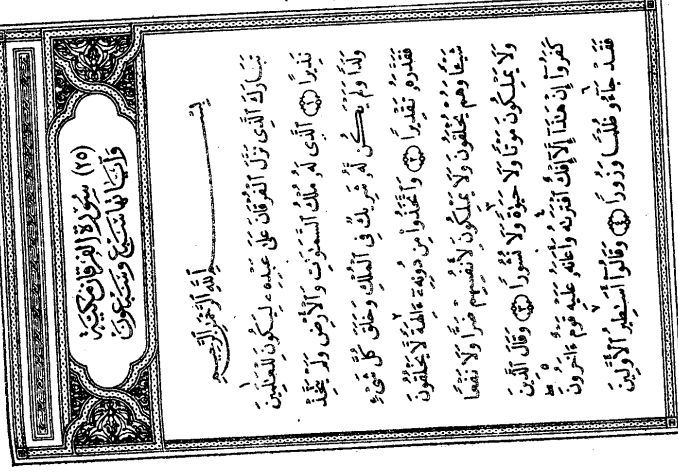 (٢٥) سُورَةُ الْفُرْقَانِ مَكِّيَّةٌ
وَآيَاتُهَا سَبْعٌ وَسَبْعُونَ
بِسْمِ ٱللَّهِ ٱلرَّحْمَٰنِ ٱلرَّحِيمِ
تَبَارَكَ ٱلَّذِى نَزَّلَ ٱلْفُرْقَانَ عَلَىٰ عَبْدِهِۦ لِيَكُونَ لِلْعَٰلَمِينَ
نَذِيرًا ١ ٱلَّذِى لَهُۥ مُلْكُ ٱلسَّمَٰوَٰتِ وَٱلْأَرْضِ وَلَمْ يَتَّخِذْ
وَلَدًا وَلَمْ يَكُن لَّهُۥ شَرِيكٌ فِى ٱلْمُلْكِ وَخَلَقَ كُلَّ شَىْءٍ
فَقَدَّرَهُۥ تَقْدِيرًا ٢ وَٱتَّخَذُوا۟ مِن دُونِهِۦٓ ءَالِهَةً لَّا يَخْلُقُونَ
شَيْـًٔا وَهُمْ يُخْلَقُونَ وَلَا يَمْلِكُونَ لِأَنفُسِهِمْ ضَرًّا وَلَا نَفْعًا
وَلَا يَمْلِكُونَ مَوْتًا وَلَا حَيَوٰةً وَلَا نُشُورًا ٣ وَقَالَ ٱلَّذِينَ
كَفَرُوٓا۟ إِنْ هَٰذَآ إِلَّآ إِفْكٌ ٱفْتَرَىٰهُ وَأَعَانَهُۥ عَلَيْهِ قَوْمٌ ءَاخَرُونَ
فَقَدْ جَآءُو ظُلْمًا وَزُورًا ٤ وَقَالُوٓا۟ أَسَٰطِيرُ ٱلْأَوَّلِينَ